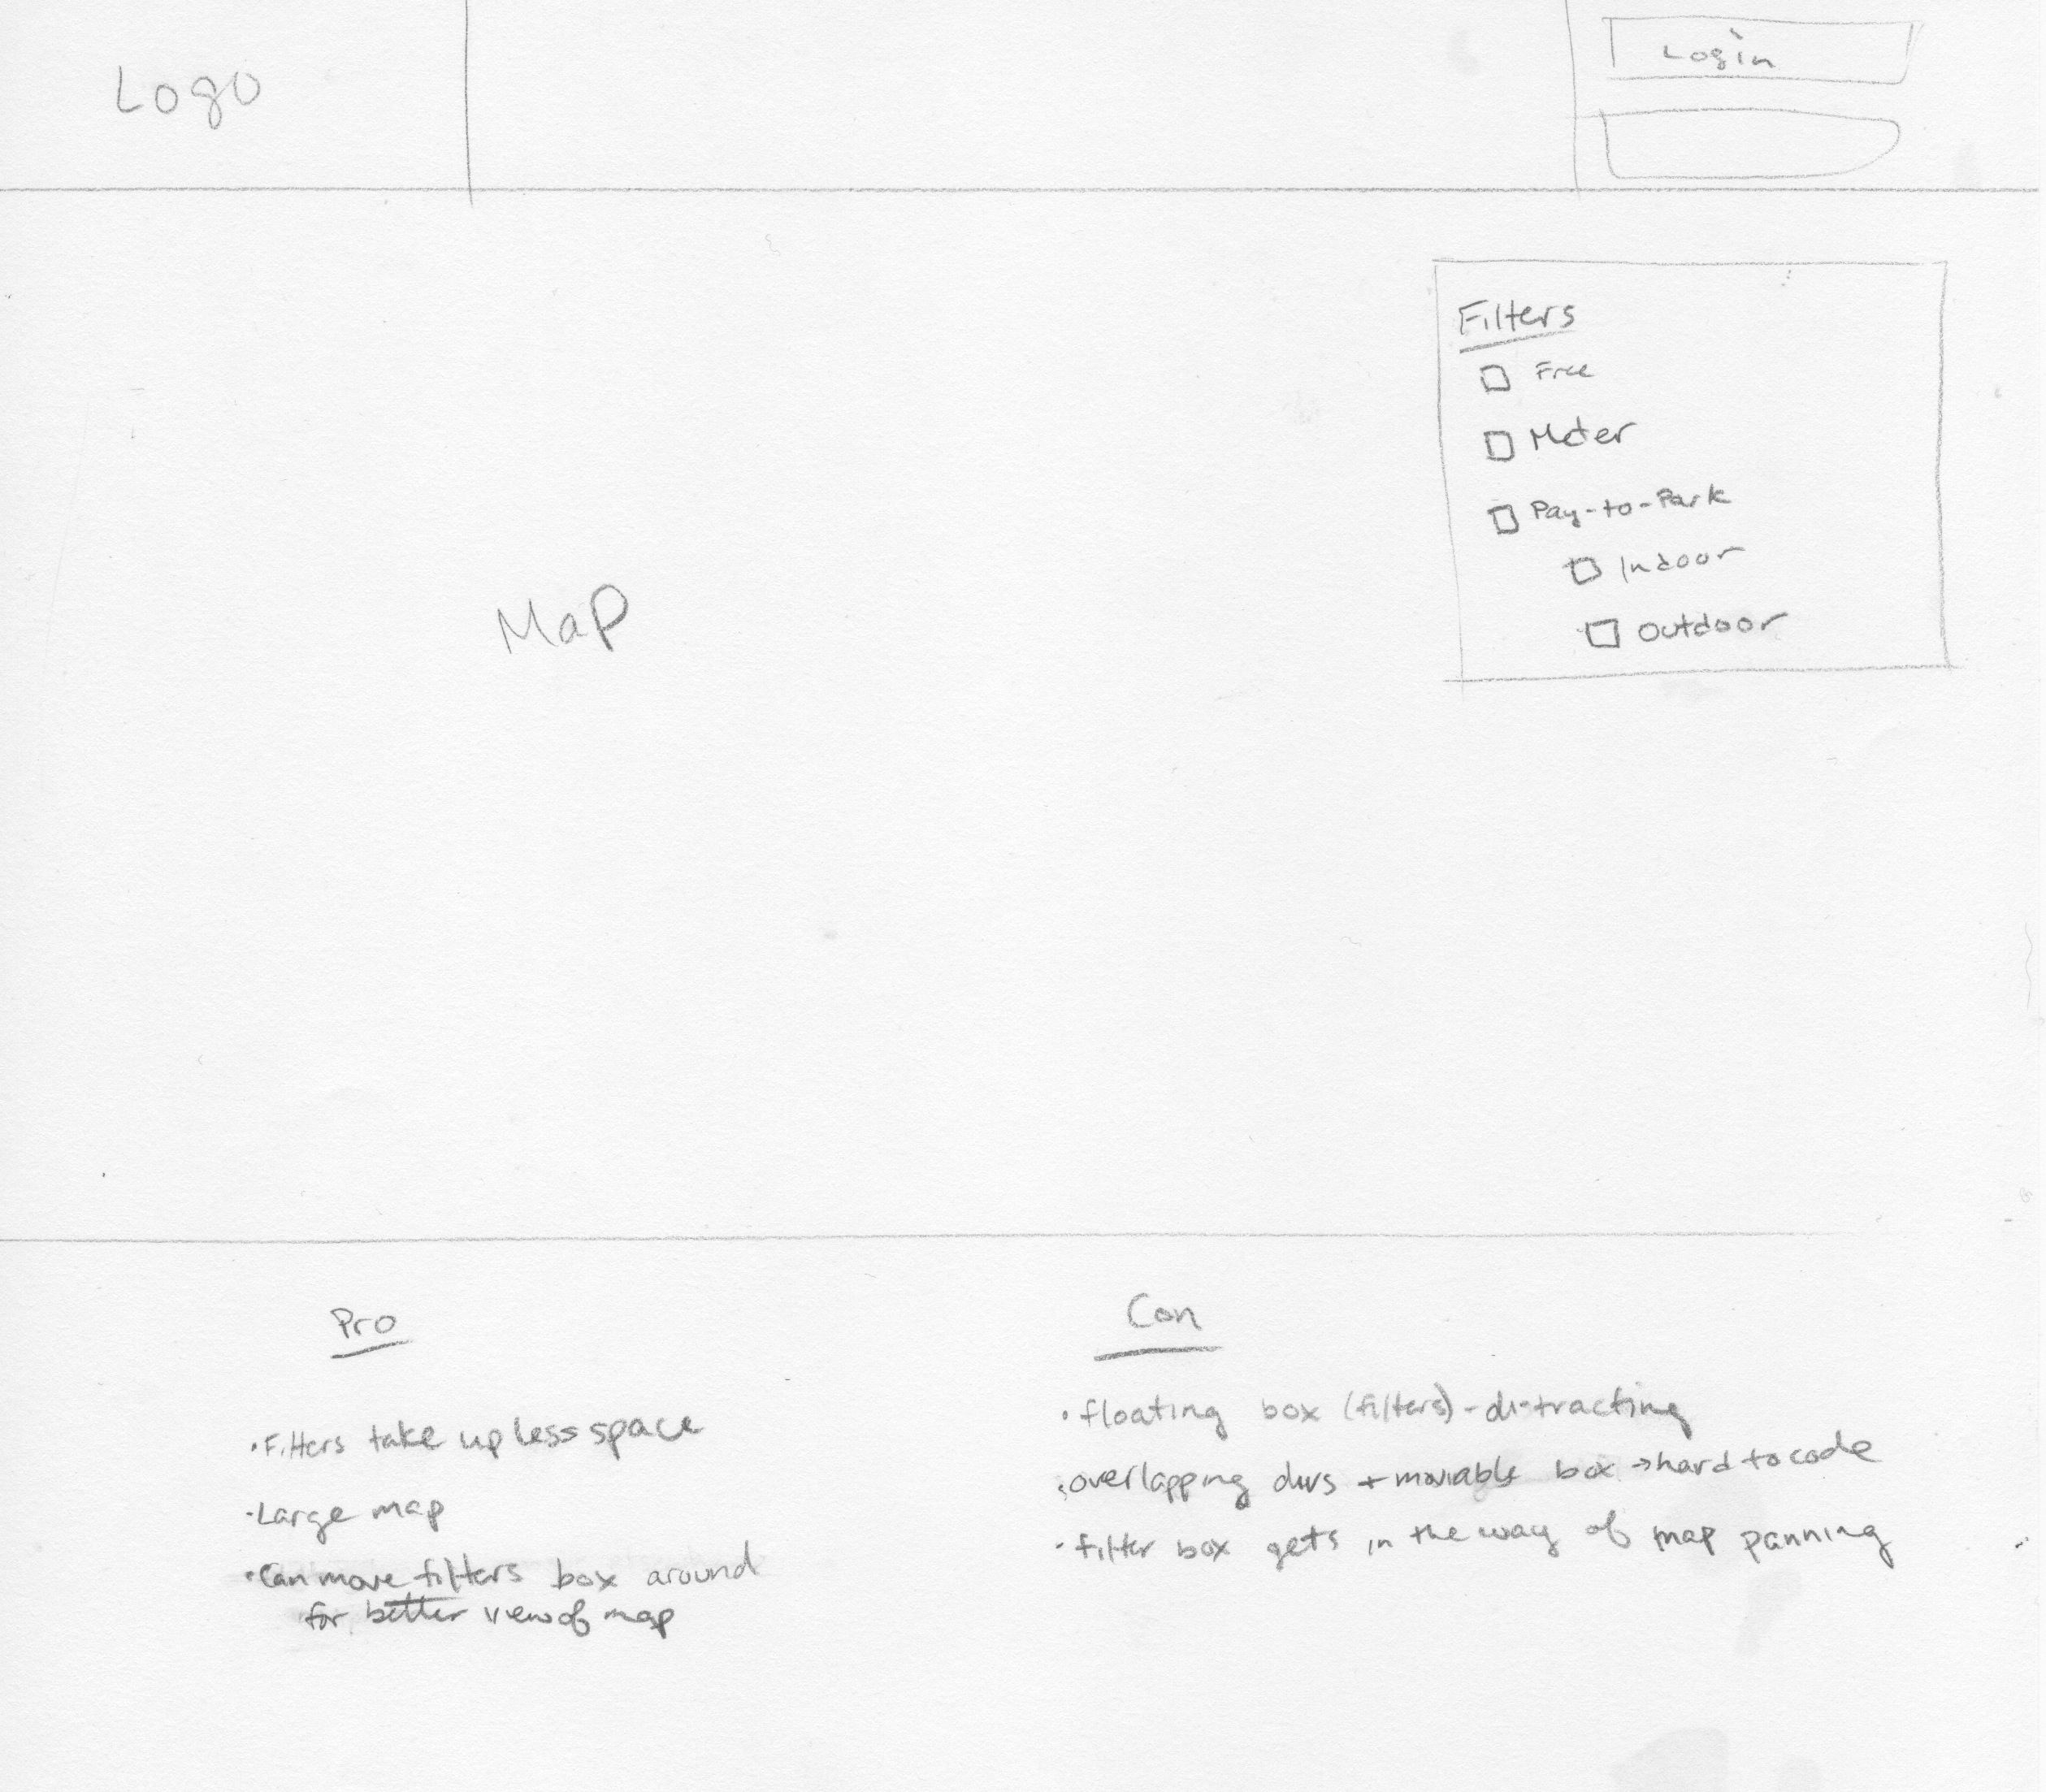 Logo
Login
Filters
Free
Meter
Pay-to-Park
Indoor
Outdoor
Map
Pro
• Filters take up less space
• Large map
• Can move filters box around
for better view of map
Con
• floating box (filters) - distracting
• overlapping divs + moviable box → hard to code
• filter box gets in the way of map panning